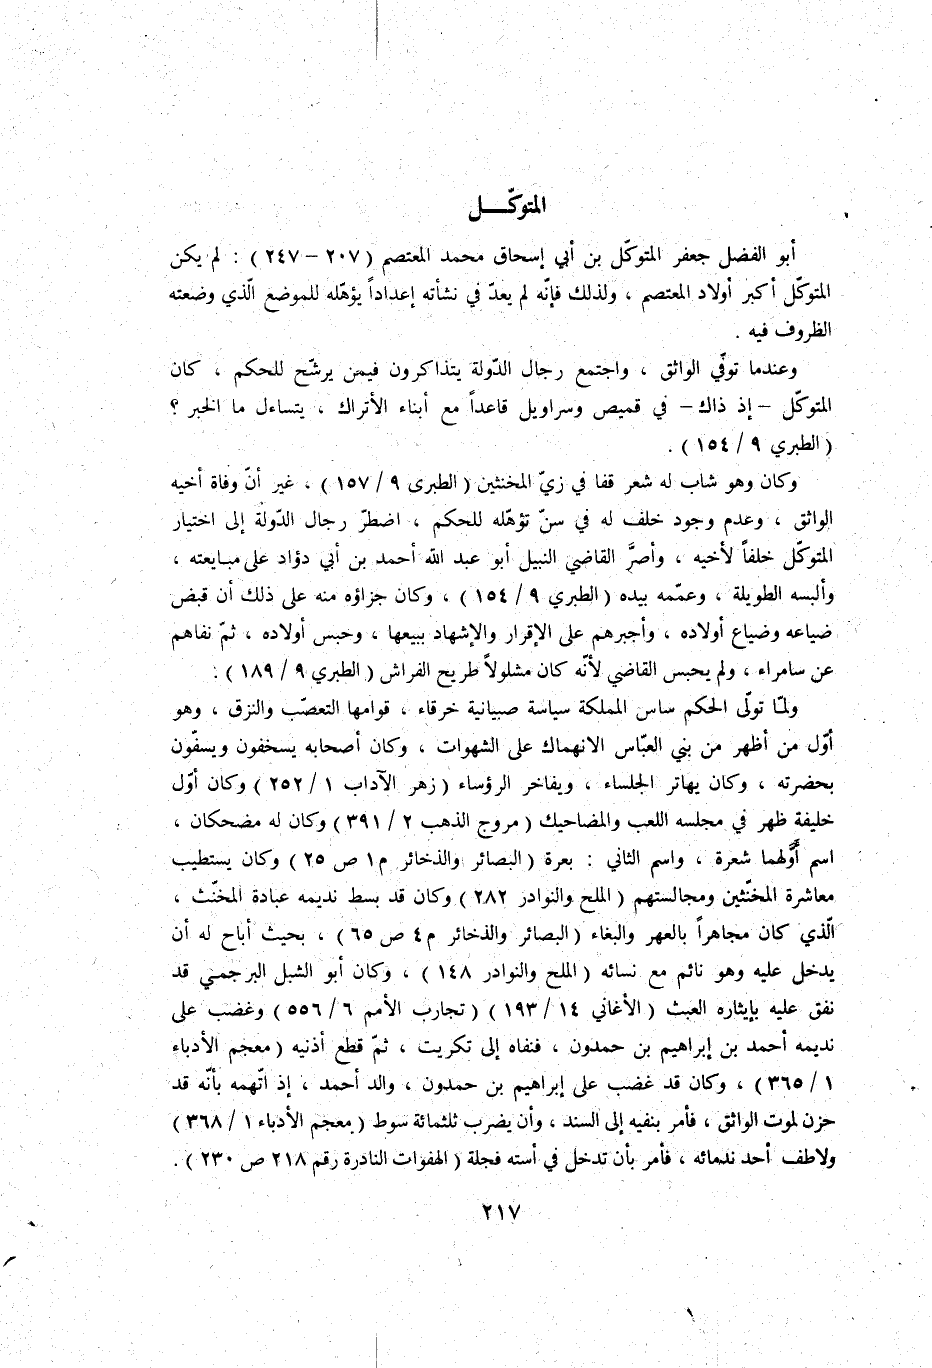 المتوكّـــل
أبو الفضل جعفر المتوكّل بن أبي إسحاق محمد المعتصم ( ٢٠٧ – ٢٤٧ ) : لم يكن
المتوكّل أكبر أولاد المعتصم ، ولذلك فإنّه لم يعدّ في نشأته إعداداً يؤهّله للموضع الّذي وضعته
الظروف فيه .
وعندما توفّي الواثق ، واجتمع رجال الدّولة يتذاكرون فيمن يرشّح للحكم ، كان
المتوكّل – إذ ذاك – في قميص وسراويل قاعداً مع أبناء الأتراك ، يتساءل ما الخبر ؟
( الطبري ٩ / ١٥٤ ) .
وكان وهو شاب له شعر قفا في زيّ المخنثين ( الطبرى ٩ / ١٥٧ ) ، غير أنّ وفاة أخيه
الواثق ، وعدم وجود خلف له في سنّ تؤهّله للحكم ، اضطرّ رجال الدّولة إلى اختيار
المتوكّل خلفاً لأخيه ، وأصرَّ القاضي النبيل أبو عبد الله أحمد بن أبي دؤاد على مبـايعته ،
وألبسه الطويلة ، وعمّمه بيده ( الطبري ٩ / ١٥٤ ) ، وكان جزاؤه منه على ذلك أن قبض
ضياعه وضياع أولاده ، وأجبرهم على الإقرار والإشهاد ببيعها ، وحبس أولاده ، ثمّ نفاهم
عن سامراء ، ولم يحبس القاضي لأنّه كان مشلولاً طريح الفراش ( الطبري ٩ / ١٨٩ ) :
ولمّا تولّى الحكم ساس المملكة سياسة صبيانية خرقاء ، قوامها التعصّب والنزق ، وهو
أوّل من أظهر من بني العبّاس الانهماك على الشهوات ، وكان أصحابه يسخفون ويسفّون
بحضرته ، وكان يهاتر الجلساء ، ويفاخر الرؤساء ( زهر الآداب ١ / ٢٥٢ ) وكان أوّل
خليفة ظهر في مجلسه اللعب والمضاحيك ( مروج الذهب ٢ / ٣٩١ ) وكان له مضحكان ،
اسم أوّلهما شعرة ، واسم الثاني : بعرة ( البصائر والذخائر م١ ص ٢٥ ) وكان يستطيب
معاشرة المخنّثين ومجالستهم ( الملح والنوادر ٢٨٢ ) وكان قد بسط نديمه عبادة المخنّث ،
الّذي كان مجاهراً بالعهر والبغاء ( البصائر والذخائر م٤ ص ٦٥ ) ، بحيث أباح له أن
يدخل عليه وهو نائم مع نسائه ( الملح والنوادر ١٤٨ ) ، وكان أبو الشبل البرجمـي قد
نفق عليه بإيثاره العبث ( الأغاني ١٤ / ١٩٣ ) ( تجارب الأمم ٦ / ٥٥٦ ) وغضب على
نديمه أحمد بن إبراهيم بن حمدون ، فنفاه إلى تكريت ، ثمّ قطع أذنيه ( معجم الأدباء
١ / ٣٦٥ ) ، وكان قد غضب على إبراهيم بن حمدون ، والد أحمد ، إذ اتّهمه بأنّه قد
حزن لموت الواثق ، فأمر بنفيه إلى السند ، وأن يضرب ثلثمائة سوط ( معجم الأدباء ١ / ٣٦٨ )
ولاطف أحد ندمائه ، فأمر بأن تدخل في أسته فجلة ( الهفوات النادرة رقم ٢١٨ ص ٢٣٠ ) .
٢١٧